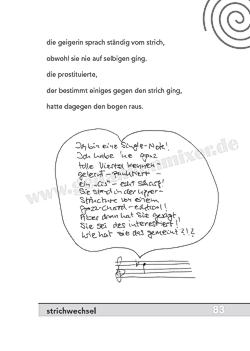 die geigerin sprach ständig vom strich,
obwohl sie nie auf selbigen ging.
die prostituierte,
der bestimmt einiges gegen den strich ging,
hatte dagegen den bogen raus.
Ich bin eine Single-Note!
Ich habe 'ne ganz
tolle Viertel kennen-
gelernt - punktiert -
ein "Cis" - echt scharf!
Sie stand in der Upper-
Structure von einem
Jazz-Chord-edition!
Aber dann hat sie gesagt,
sie sei des interessiert!
Wie hat sie das gemeint?!?
strichwechsel 83